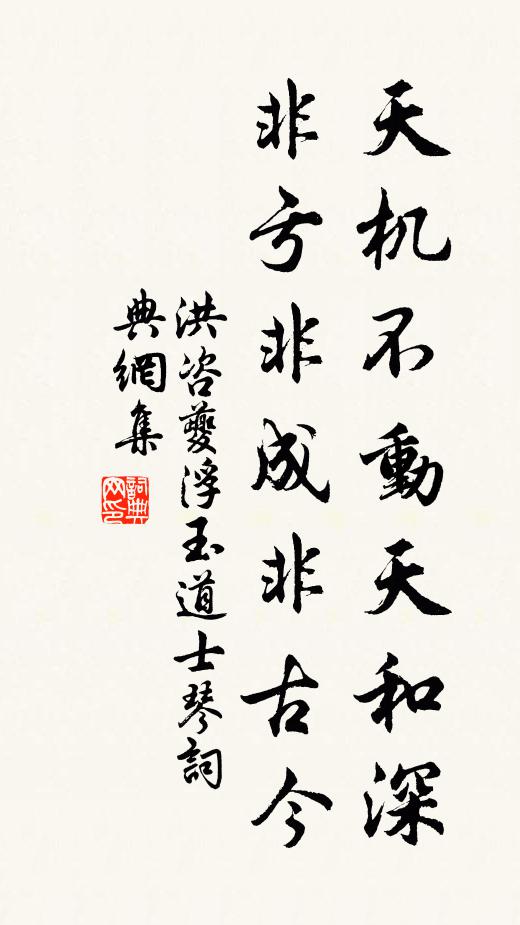 天机不動天和深
非亏非成非古今
洪咨夔浮玉道士琴詞
典網集
詞典
网印